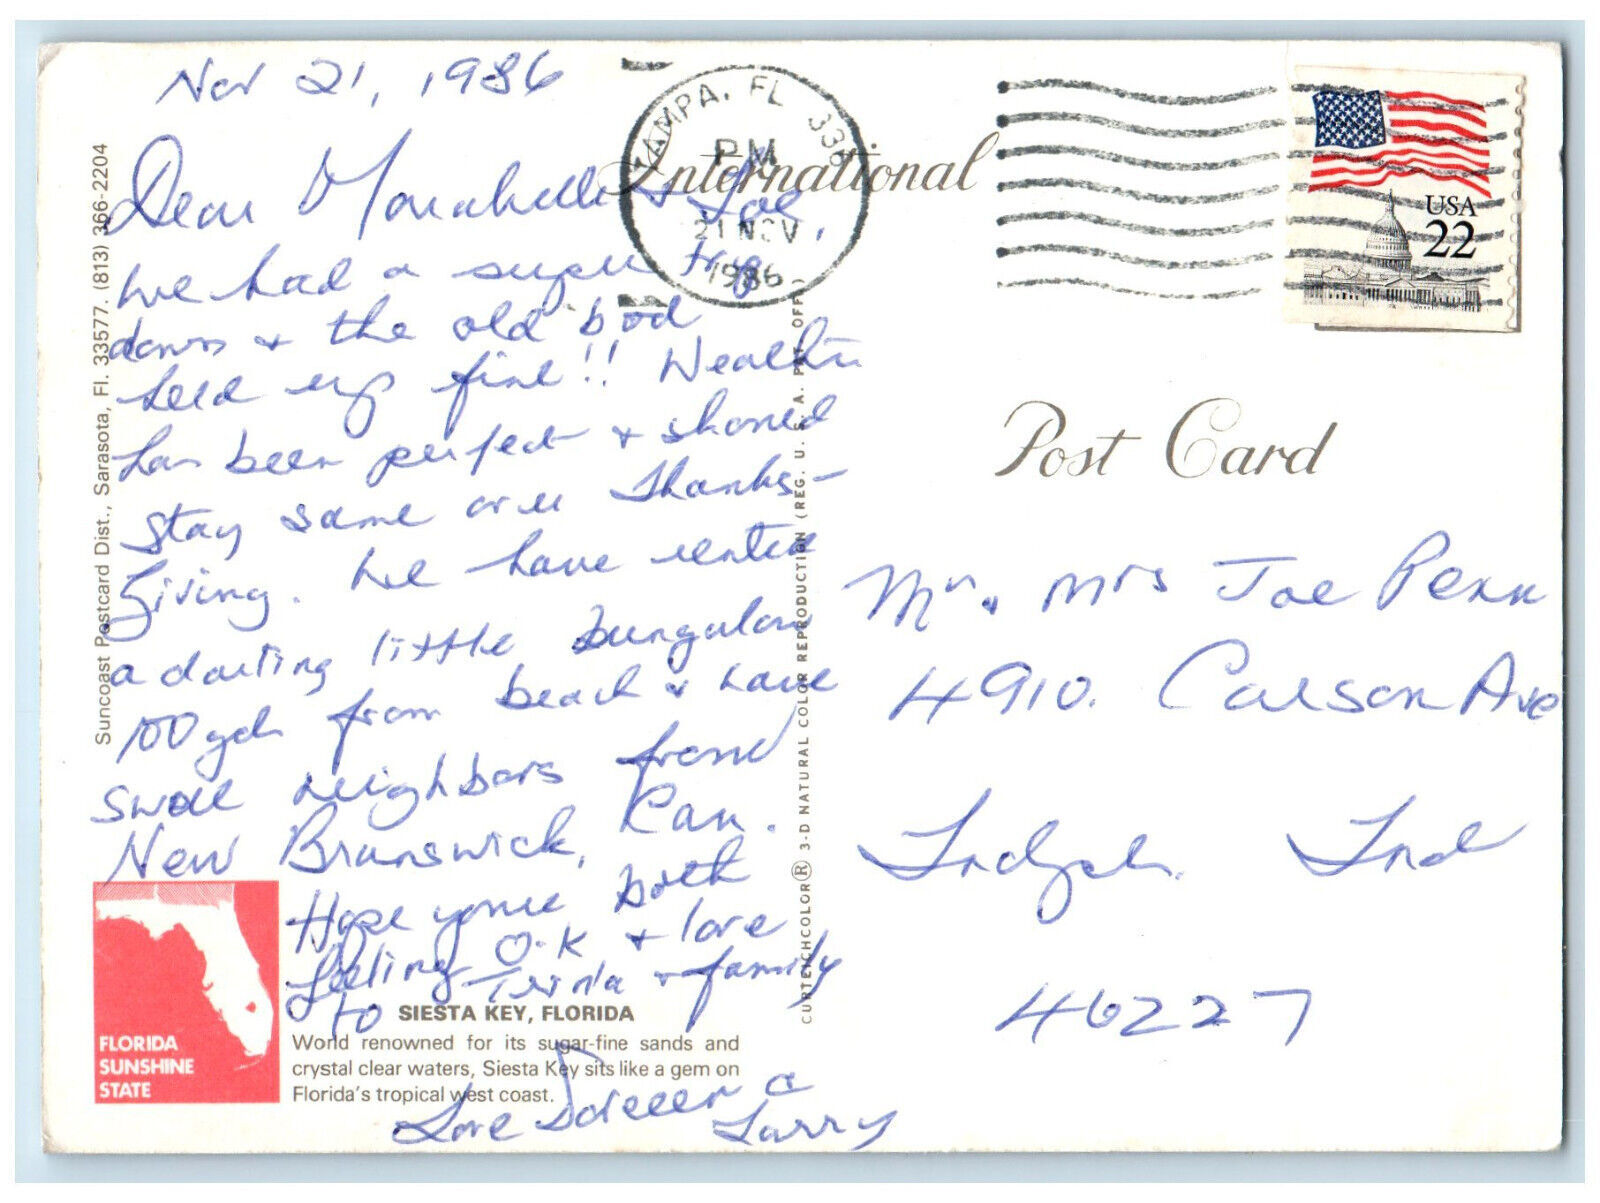 Nov 21, 1986
Dear & Joe,
we had a super trip
down & the old bod
held up fine!! Weather
has been perfect & should
stay same over Thanks-
giving. We have rented
a darling little bungalow
100 yds from beach & have
swell neighbors from
New Brunswick, Can.
Hope you're both
feeling O.K & love
to & family
Love &
Larry
TAMPA, FL 336
PM
21 NOV
1986
International
USA
22
Post Card
Mr. & Mrs Joe Penn
4910. Carson Ave
Indpls. Ind
46227
Suncoast Postcard Dist., Sarasota, Fl. 33577. (813) 366-2204
CURTEICHCOLOR® 3-D NATURAL COLOR REPRODUCTION (REG. U. S. A. PAT. OFF.)
FLORIDA
SUNSHINE
STATE
SIESTA KEY, FLORIDA
World renowned for its sugar-fine sands and
crystal clear waters, Siesta Key sits like a gem on
Florida's tropical west coast.